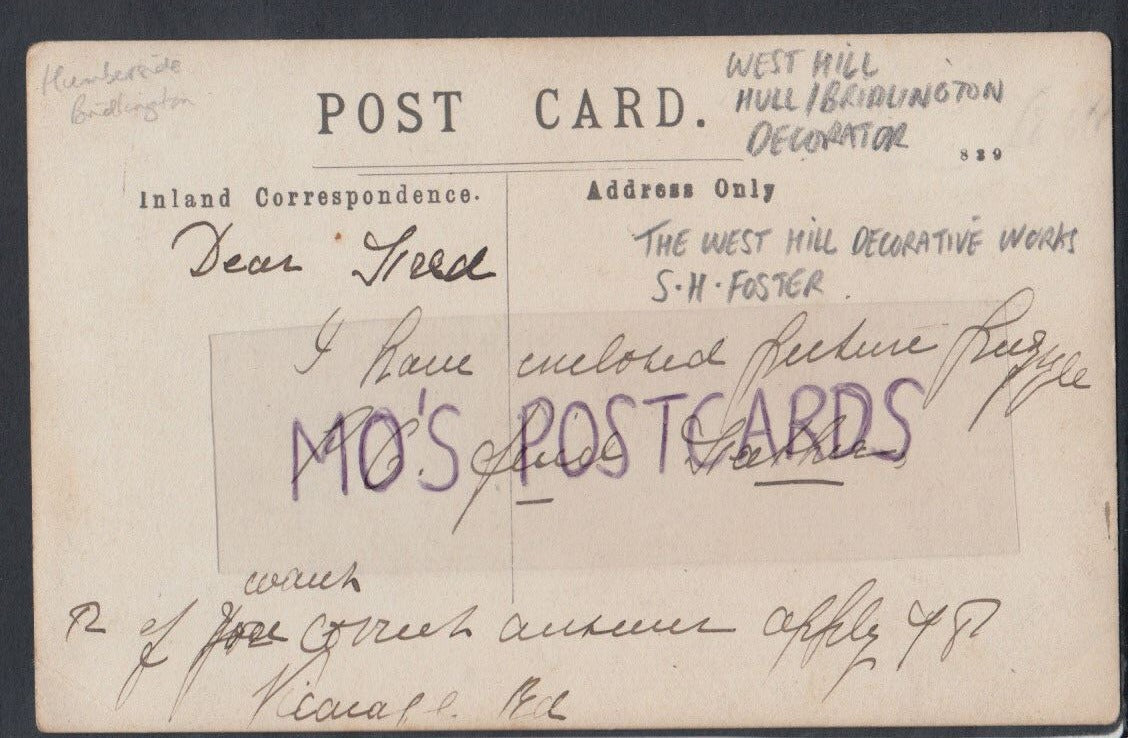 Humberside
Bridlington
WEST HILL
HULL/BRIDLINGTON
DECORATOR
POST CARD.
839
Inland Correspondence.
Address Only
THE WEST HILL DECORATIVE WORKS
S.H. FOSTER.
Dear Fred
I have enclosed picture puzzle
MO'S POSTCARDS
find Father
want
if you correct answer apply 48
Vicarage Rd